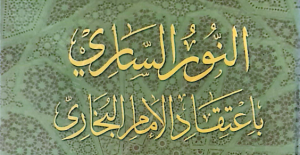 النُّورُ السَّارِي
بِاعْتِقَادِ الإِمَامِ البُخَارِيِّ